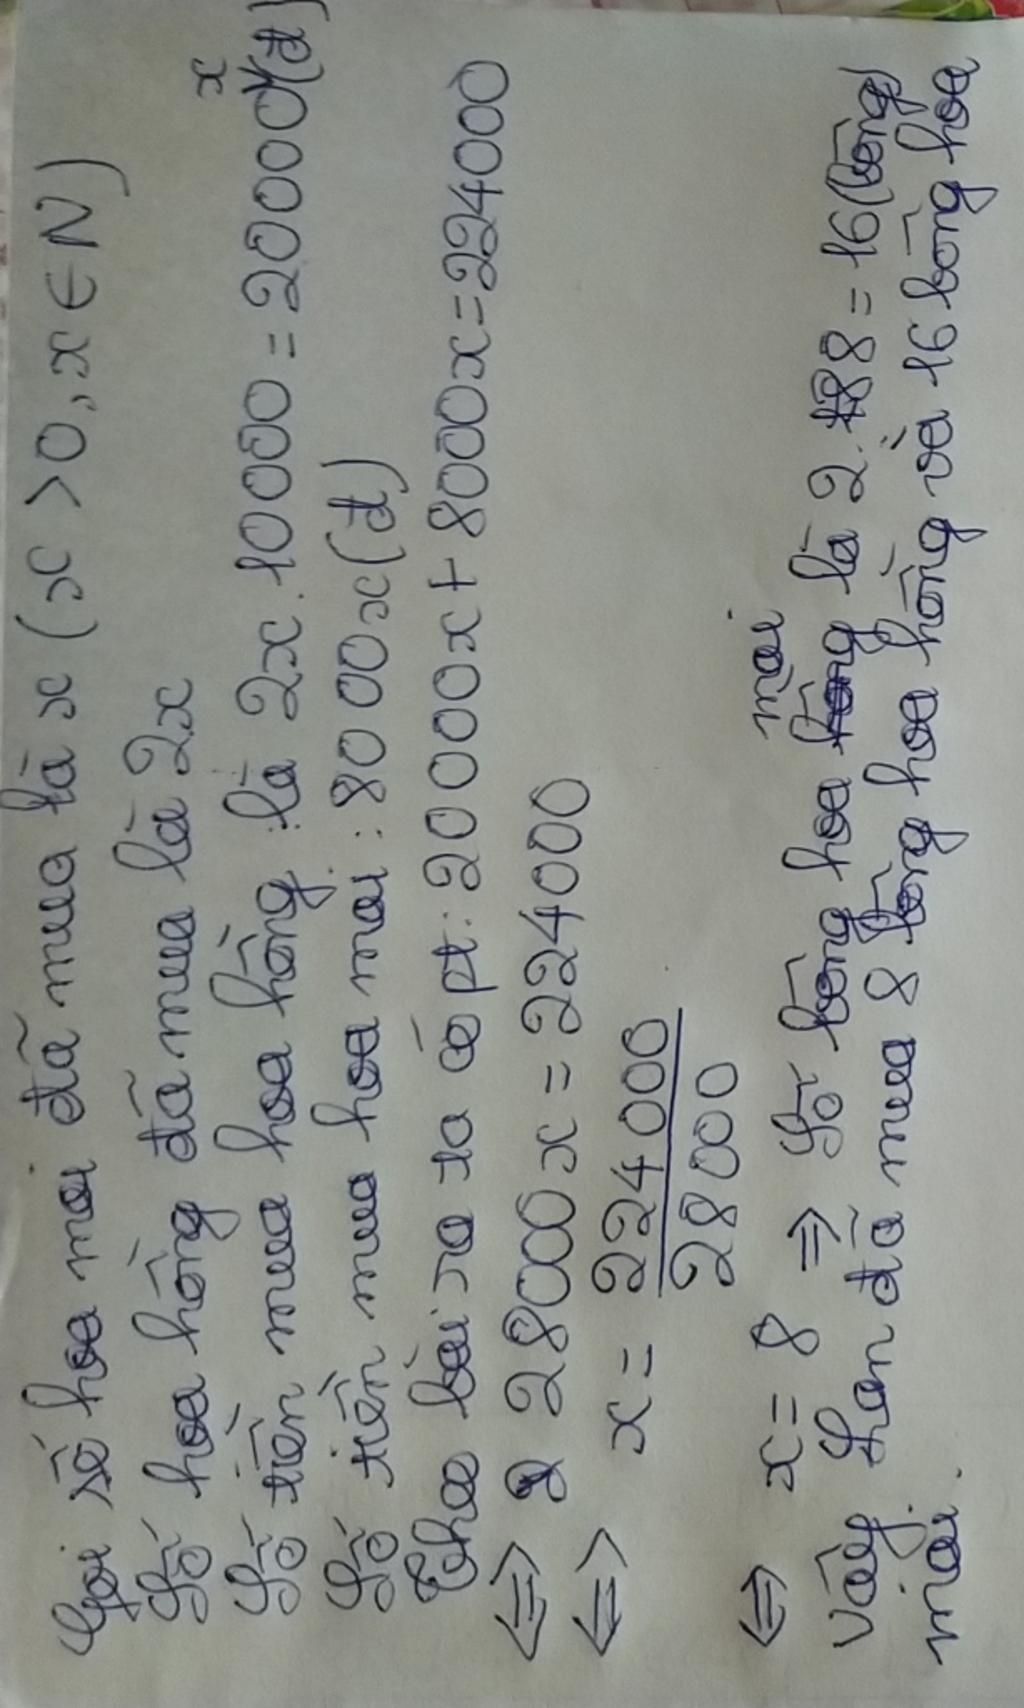 Gọi số hoa mai đã mua là x (x > 0, x ∈ N)
Số hoa hồng đã mua là 2x
Số tiền mua hoa hồng : là 2x . 10000 = 20000x (đ)
Số tiền mua hoa mai : 8000x (đ)
Theo bài ra ta có pt : 20000x + 8000x = 224000
⇔ 28000x = 224000
⇔ x = 224000
28000
⇔ x = 8 ⇒ Số bông hoa mai là 2 . 8 = 16 (bông)
Vậy Lan đã mua 8 bông hoa hồng và 16 bông hoa
mai .